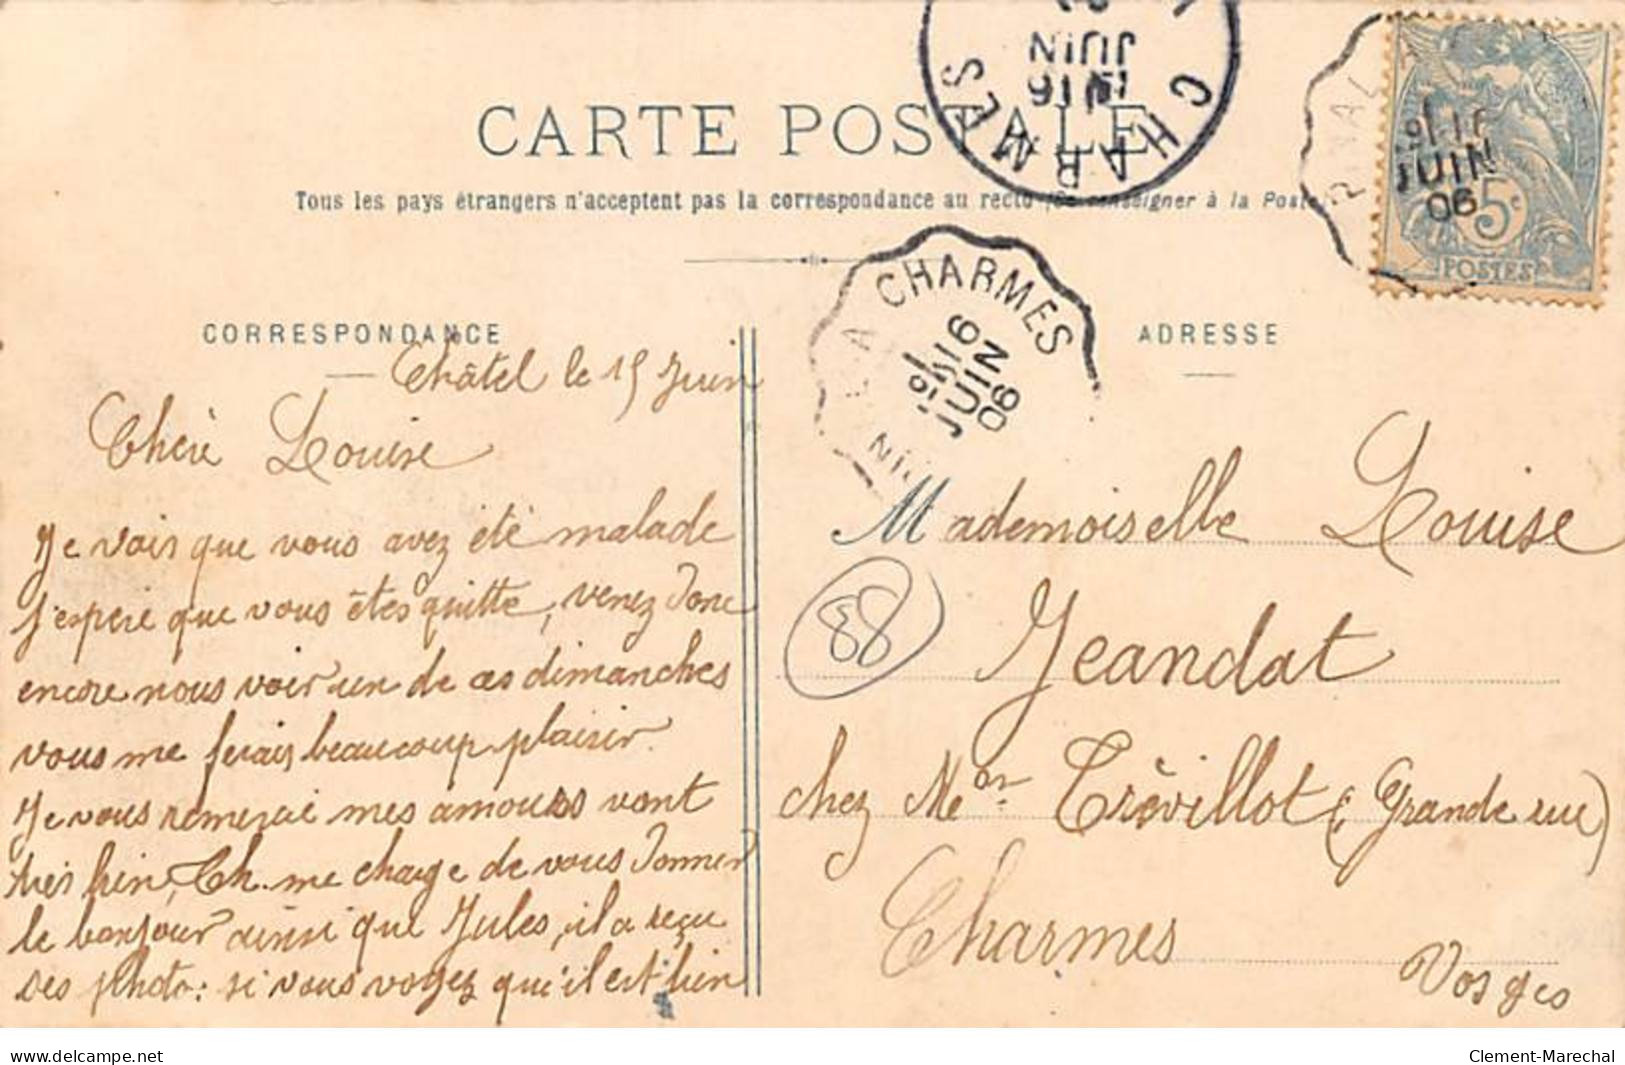 CARTE POSTALE
Tous les pays étrangers n'acceptent pas la correspondance au recto (Se renseigner à la Poste
CORRESPONDANCE
Châtel le 15 Juin
Chère Louise
Je vois que vous avez été malade
j'espère que vous êtes quitte, venez donc
encore nous voir un de ces dimanches
vous me ferais beaucoup plaisir.
Je vous remerçié mes amours vont
très bien, Ch. me charge de vous donner
le bonjour ainsi que Jules, il a reçu
ses photo: si vous voyez qu'il est bien
ADRESSE
Mademoiselle Louise
Jeandat
chez Me Trévillot (Grande rue)
Charmes
Vosges
88
CHARMES
16
JUIN
CHARMES
16
JUIN
06
PINAL
16
JUIN
06
5c
POSTES
delcampe.net
Clement-Marechal